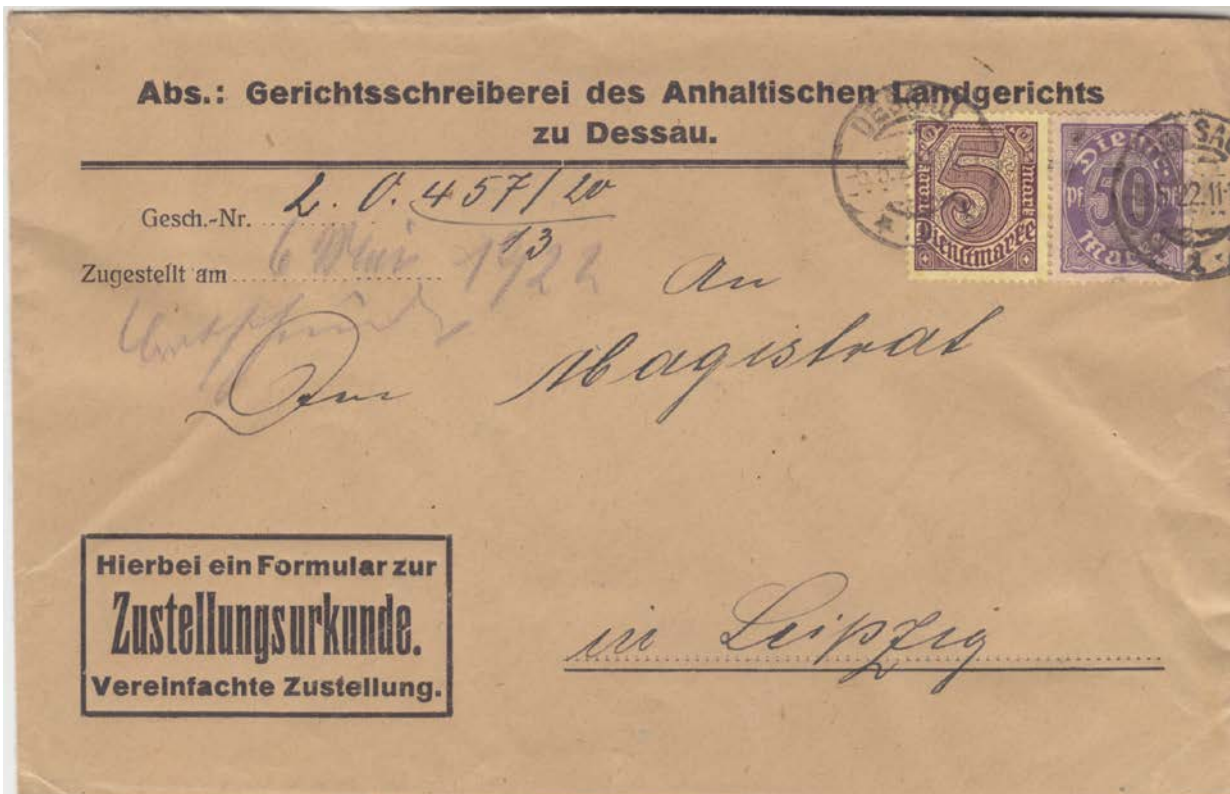 Abs.: Gerichtsschreiberei des Anhaltischen Landgerichts
zu Dessau.
Gesch.-Nr. L. O. 457/20
13
Zugestellt am 6 Mai 1922
An
Den Magistrat
in Leipzig
Hierbei ein Formular zur
Zustellungsurkunde.
Vereinfachte Zustellung.
5
Mark
Mark
Dienstmarke
Dienst-
Pf 50 Pf
Marke
DESSAU